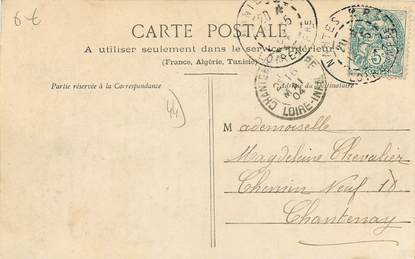 6 €
CARTE POSTALE
A utiliser seulement dans le service intérieur
(France, Algérie, Tunisie)
Partie réservée à la Correspondance
Adresse du Destinataire
NANTES
CHANTENAY
MAI
04
LOIRE-INFRE
44
Mademoiselle
Magdeleine Chevalier
Chemin Neuf 18
Chantenay